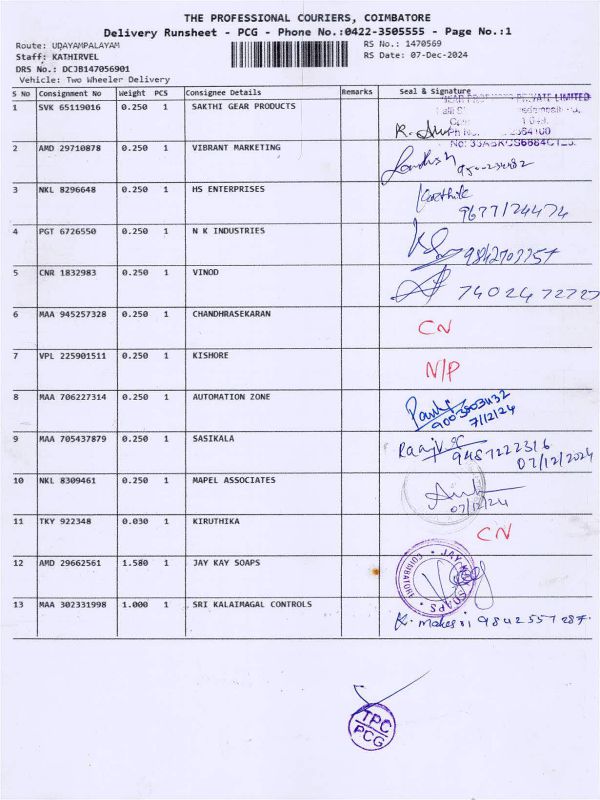 THE PROFESSIONAL COURIERS, COIMBATORE
Delivery Runsheet - PCG - Phone No.:0422-3505555 - Page No.:1
Route: UDAYAMPALAYAM RS No.: 1470569
Staff: KATHIRVEL RS Date: 07-Dec-2024
DRS No.: DCJB147056901
Vehicle: Two Wheeler Delivery
S No Consignment No Weight PCS Consignee Details Remarks Seal & Signature
1 SVK 65119016 0.250 1 SAKTHI GEAR PRODUCTS
2 AMD 29710878 0.250 1 VIBRANT MARKETING
3 NKL 8296648 0.250 1 HS ENTERPRISES Karthik
9677124474
4 PGT 6726550 0.250 1 N K INDUSTRIES
5 CNR 1832983 0.250 1 VINOD
6 MAA 945257328 0.250 1 CHANDHRASEKARAN CN
7 VPL 225901511 0.250 1 KISHORE N/P
8 MAA 706227314 0.250 1 AUTOMATION ZONE
7/12/24
9 MAA 705437879 0.250 1 SASIKALA
9487222316
07/12/2024
10 NKL 8309461 0.250 1 MAPEL ASSOCIATES
07/12/24
11 TKY 922348 0.030 1 KIRUTHIKA CN
12 AMD 29662561 1.580 1 JAY KAY SOAPS
13 MAA 302331998 1.000 1 SRI KALAIMAGAL CONTROLS
TPC
PCG